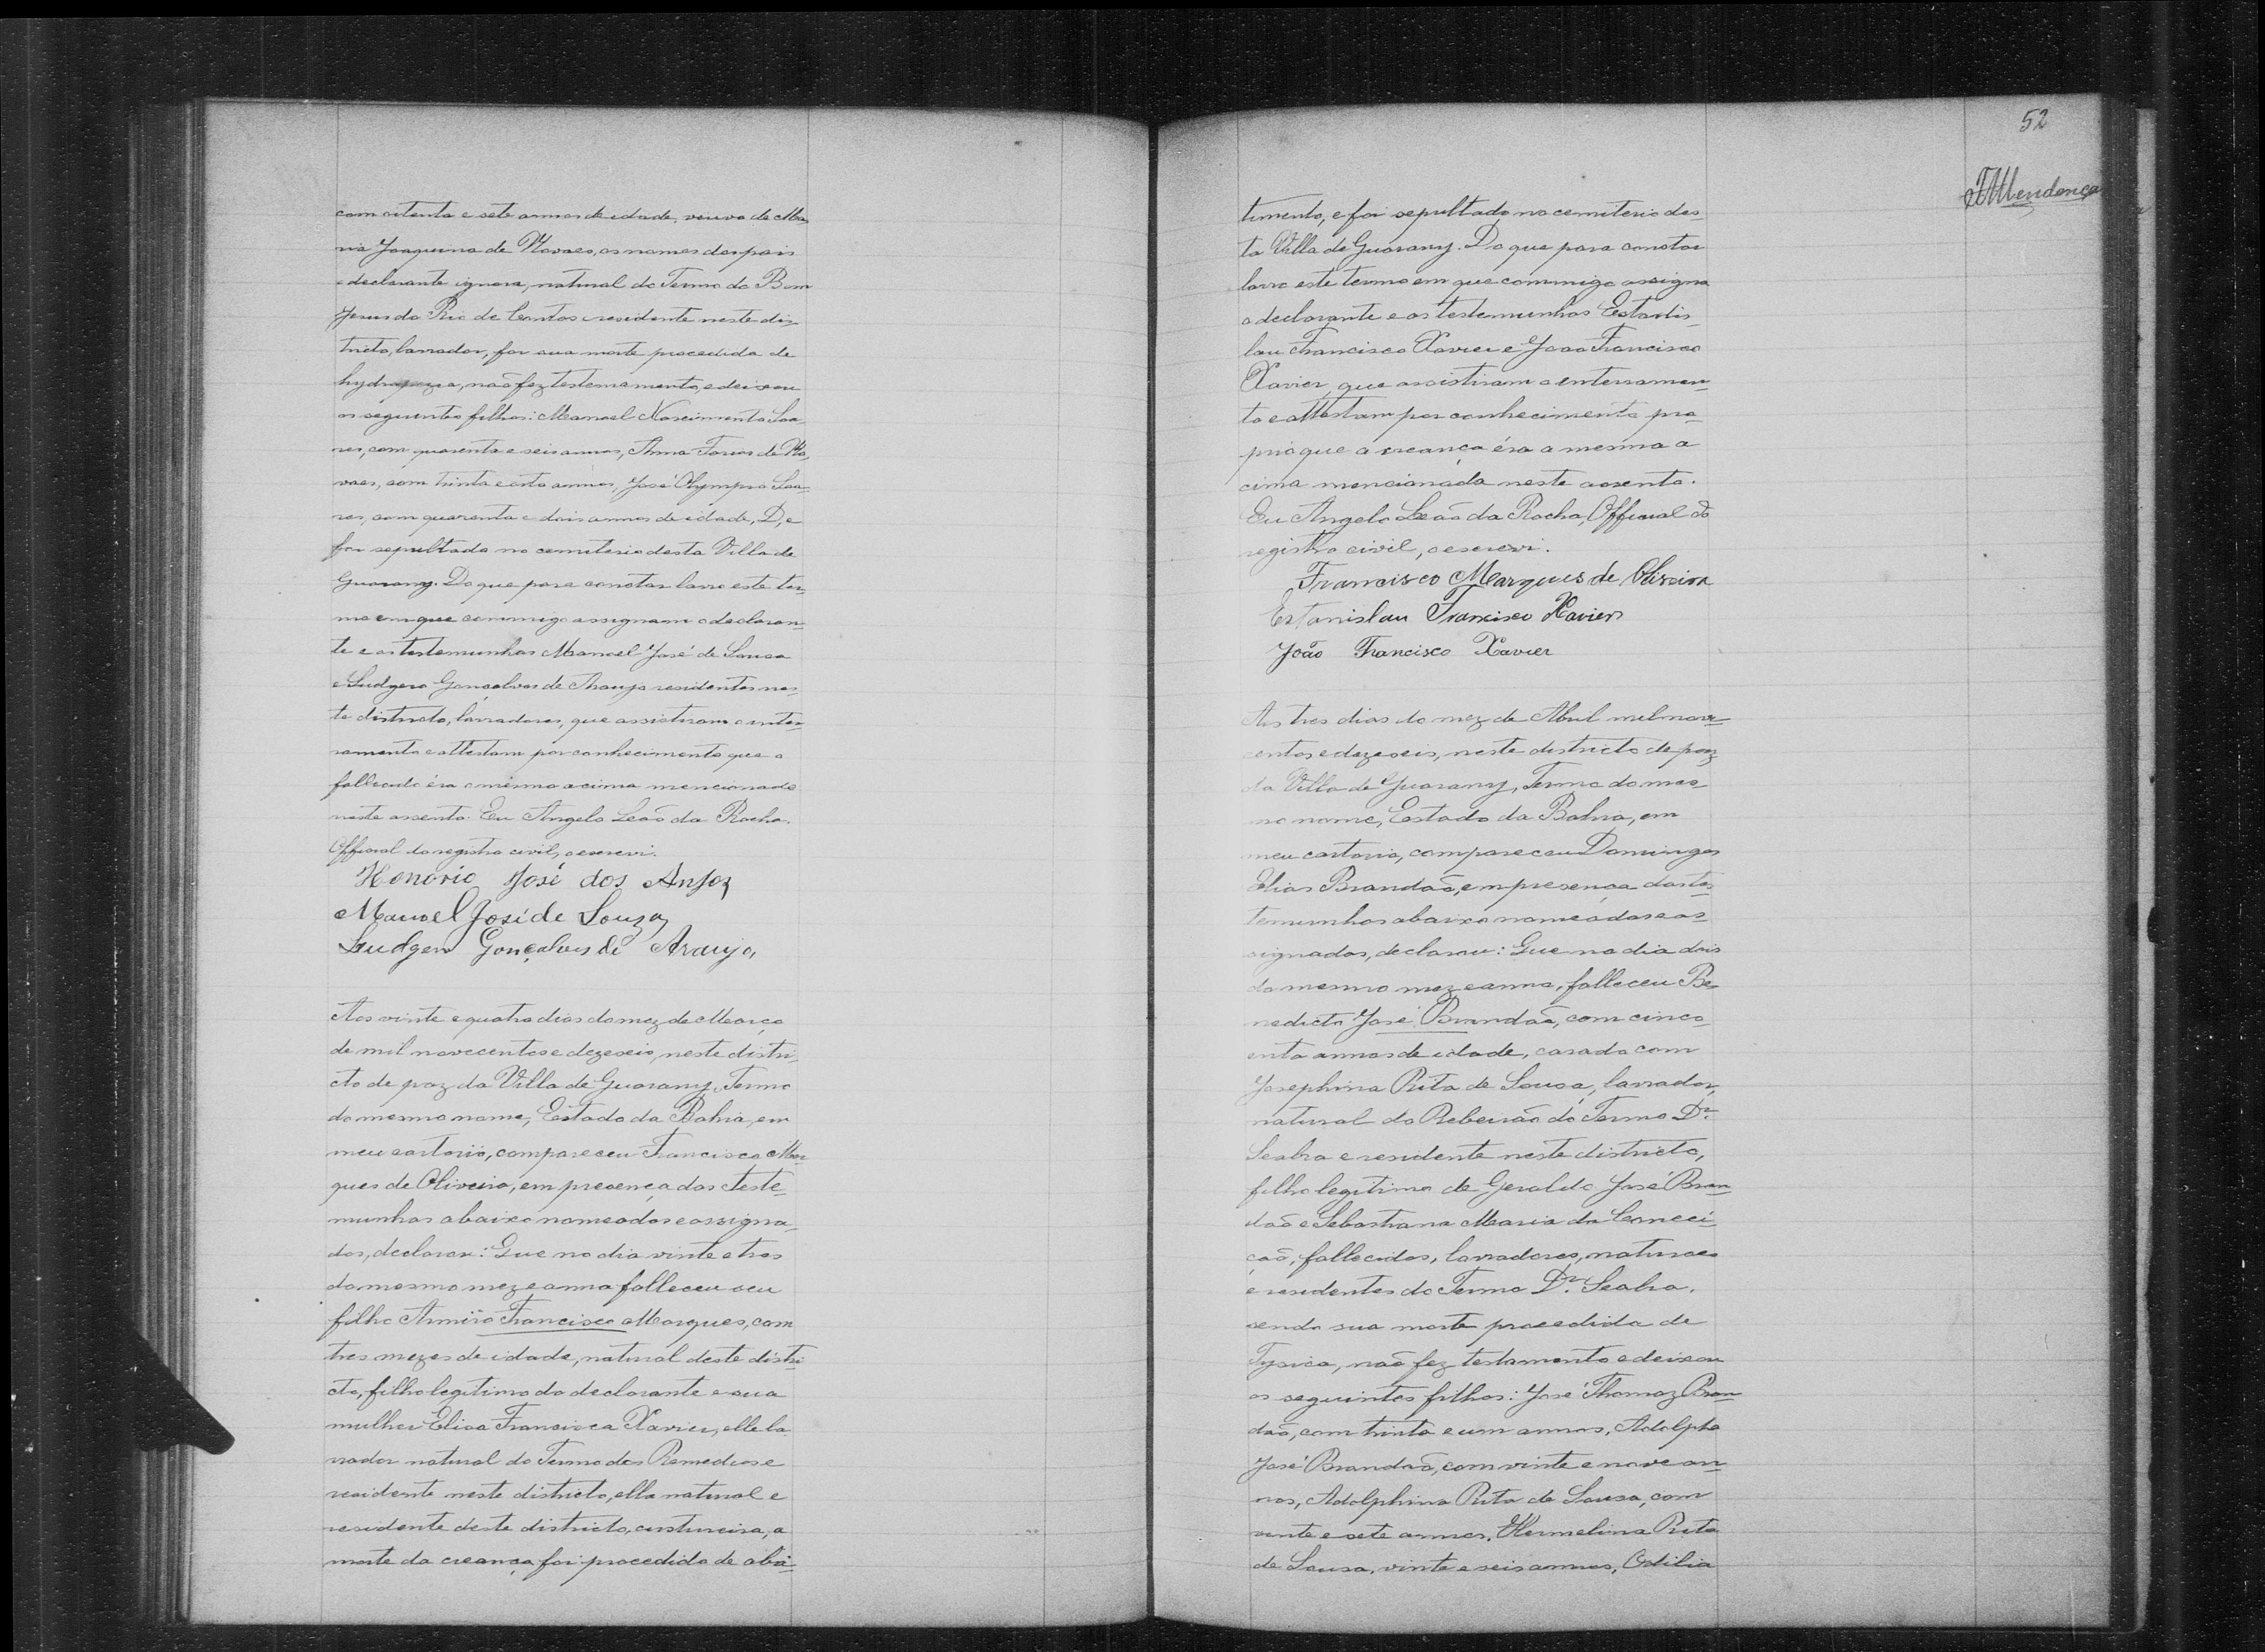 com oitenta e sete annos de idade, veuvo de Ma-
ria Joaquina de Novaes, os nomes dos pais
o declarante ignora, natural do Termo do Bom
Jesus do Rio de Contas e residente neste dis-
tricto, lavrador, foi sua morte procedida de
hydropezia, não fez testemamento, e deixou
os seguintes filhos: Manoel Nascimento Soa-
res, com quarenta e seis annos, Anna Torres de No-
vaes, com trinta e oito annos, José Olympio Soa-
res, com quarenta e dois annos de idade, D, e
foi sepultado no cemiterio desta Villa de
Guarany. Do que para constar lavro este ter-
mo em que commigo assignam o declaran-
te e as testemunhas Manoel José de Sousa
e Ludgero Gonçalves de Araujo residentes nes-
te districto, lavradores, que assistiram o enter-
ramento e attestam por conhecimento que o
fallecido éra o mesmo acima mencionado
neste assento. Eu Angelo Leão da Rocha.
Official do registro civil, o escrevi.
Honorio José dos Anjos
Manoel José de Souza
Ludgero Gonçalves de Araujo,
Aos vinte e quatro dias do mez de Março
de mil novecentos e dezeseis, neste distri-
cto de paz da Villa de Guarany, Termo
do mesmo nome, Estado da Bahia, em
meu cartorio, compareceu Francisco Mar-
ques de Oliveira, em presença das teste-
munhas abaixo nomeadas e assigna-
das, declarou: Que no dia vinte e tres
do mesmo mez e anno falleceu seu
filho Armiro Francisco Marques, com
tres mezes de idade, natural deste distri-
cto, filho legitimo do declarante e sua
mulher Elisa Francisca Xavier, elle la-
vrador natural do Termo dos Remedios e
residente neste districto, ella natural e
residente deste districto, custureira, a
morte da creança foi procedida de aba-
52
Mendonça
timento, e foi sepultado no cemiterio des-
ta Villa de Guarany. Do que para constar
lavro este termo em que commigo assigna
o declarante e as testemunhas Estanis-
lau Francisco Xavier e Joao Francisco
Xavier, que assistiram o enterramen-
to e attestam por conhecimento pro-
prio que a creança éra a mesma a
cima mencionada neste assento.
Eu Angelo Leão da Rocha, Official do
registro civil, o escrevi.
Francisco Marques de Oliveira
Estanislau Francisco Xavier
João Francisco Xavier
Aos tres dias do mez de Abril mil nove-
centos e dezeseis, neste districto de paz
da Villa de Guarany, Termo do mes-
mo nome, Estado da Bahia, em
meu cartorio, compareceu Domingos
Elias Brandão, em presença das tes-
temunhas abaixo nomeadas e as-
signadas, declarou: Que no dia dois
do mesmo mez e anno, falleceu Be-
nedicto José Brandão, com cinco-
enta annos de idade, casado com
Josephina Rita de Sousa, lavrador,
natural do Rebeirão do Termo Dr.
Seabra e residente neste districto,
filho legitimo de Geraldo José Bran-
dão e Sebastiana Maria da Concei-
ção, fallecidos, lavradores, naturaes
e residentes do Termo Dr. Seabra.
sendo sua morte procedida de
Tysica, não fez testamento e deixou
os seguintes filhos: José Thomaz Bran-
dão, com trinta e um annos, Adolpho
José Brandão, com vinte e nove an-
nos, Adolphina Rita de Sousa, com
vinte e sete annos, Hermelina Rita
de Sousa, vinte e seis annos, Odilia